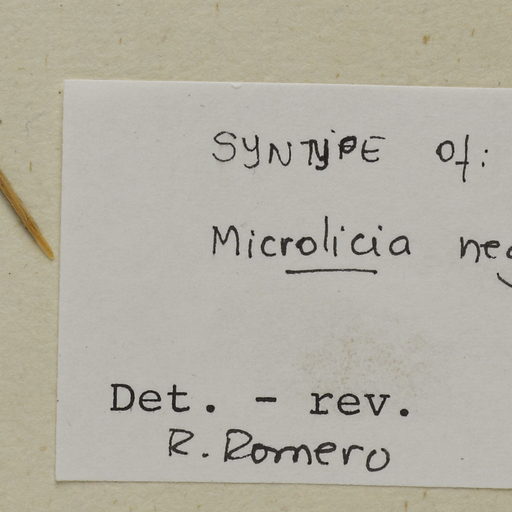 SYNTYPE Of:
Microlicia
Det. - rev.
R. Romero